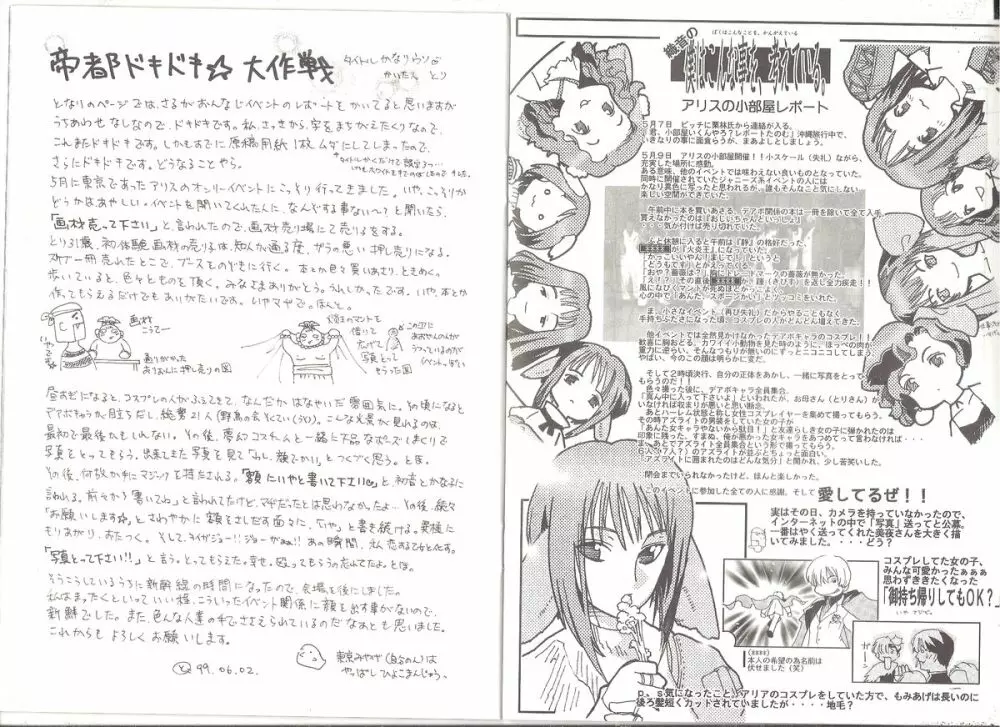 帝都ドキドキ☆大作戦
タイトルかなりウソ
かいたん とり
となりのページでは、さるがおんなじイベントのレポートをかいてると思いますが
うちあわせなしなので、ドキドキです。私、さっきから字をまちがえたくりなので、
これまたドキドキです。しかもすでに原稿用紙1枚ムダにしてしまったので、
さらにドキドキです。どうなることやら。
5月に東京であったアリスのオンリーイベントにこっそり行ってきました。いや、こっそりか
どうかはあやしい。イベントを開いてくれた人に、なんでする事ない〜？と聞いたら、
「画材売って下さい」と言われたので、画材売り場にて売り子をする。
とり31歳、初体験。画材の売り子は、知人が通る度、ガラの悪い押し売りになる。
冊子一冊売れたとこで、ブースをのぞきに行く。本とか色々買いあさり、ときめく。
歩いていると、色々とものを頂く。みなさまありがとう。うれしかったです。いや、本とか
作ってもらえるだけでもありがたいです。いやマヂで。ほんと。
画材
こうてー
通りがかった
あおりんに押し売りの図
マントを
借りて
広げて
写真とって
もらった図
昼すぎになると、コスプレの人がふえてきて、なんだかはなやいだ雰囲気に。その頃になると
デアボキャラが目立ちだし、総勢21人(野鳥の会とくていくらい)。こんな光景が見れるのは、
最初で最後かもしれない。その後、夢幻コスちゃんと一緒に下品なポーズしまくりで
写真をとってもらう。出来ました写真を見て「わし、顔でかい」とつくづく思う。とほ。
その後、何故か手にマジックを持たされる。「額にいやと書いて下さい」と、初音とかな子に
言われる。前々から「書いてね」と言われてたけど、マヂだったとは思わなかったよ…その後、続々
「お願いします☆」とさわやかに額をさしだす面々に、「いや」と書き続ける。異様に
もりあがり、おたつく。そして、タイガジョー!!ジョーがぁぁ!!あの瞬間、私、恋する乙女と化す。
「写真とって下さい!!」と言う。とってもらえた。幸せ。殴ってもらうの忘れてたよ。とほ。
そうこうしているうちに新幹線の時間になったので、会場を後にしました。
私はまったくといっていい程、こういったイベント関係に顔を出す事がないので、
新鮮でした。また、色んな人達の手でささえられているのだなぁとも思いました。
これからもよろしくお願いします。
99.06.02.
東京みやげ(自分のん)は
やっぱしひよこまんじゅう。
ぼくはこんなことを、かんがえている
僕はこんな事を考えている。
アリスの小部屋レポート
5月7日　ピッチに栗林氏から連絡が入る。
「君、小部屋いくんやろ？レポートたのむ」沖縄旅行中で、
いきなりの事に面食らうが、まあよしとしましょう。
5月9日　アリスの小部屋開催！！小スケール(失礼)ながら、
充実した場所に感動。
ある意味、他のイベントでは味わえない良いものとなっていた。
同時に開催されていたジャニーズ系イベントの人には
かなり異色に写ったと思われるが、誰もそんなこと気にしない
楽しい空間ができていた。
午前中に本を買いあさる、デアボ関係の本は一冊を除いて全て入手。
買えなかったのは「おじいちゃんといっしょ」
・・・気が付けば売り切れていた。
「かっこいいやん！まじで！」というと
「どうもです」とかえってくる
「おや？薔薇は？」胸にトレードマークの薔薇が無かった。
風になびくマントが死ぬほどかっこよく
心の中で「あんた、スポーンかい」とツッコミをいれた。
ま、小さなイベント(再び失礼)だからやることもなく
手持ちぶたさになった頃、コスプレの人がどんどん増えてきた。
他イベントでは全然見かけなかったデアボキャラのコスプレ！！
歓喜に胸おどる、カワイイ小動物を見た時のように、ほっぺの肉が
重力に逆らい、そんなつもりが無いのにずっとニコニコしてしまう。
やばい、今この顔は明らかに変だ。
そして2時頃決行、自分の正体をあかし、一緒に写真をとって
もらうのだ！！
色々撮った後に、デアボキャラ全員集合。
「真ん中に入って下さいよ」といわれたが、お母さん(とりさん)が
いなければ収まりが悪いと思い断念。
あとハーレム状態と称し女性コスプレイヤーを集めて撮ってもらう。
その時アズライトの男装をしていた女の子が
「あんた女キャラやないから駄目！」と友達らしき女の子に弾かれたのは
印象に残った。すまぬ、俺が悪かった女キャラをあつめてって言わなければ・・・
ま、あとでアズライト全員集合という形で撮ってもらったが。
6人(7人？)のアズライトが並ぶとちょっと面白い。
「アズライトに囲まれたのはどんな気分」と聞かれ、少し苦笑いした。
閉会までいられなかったけど、ほんと楽しかった。
このイベントに参加した全ての人に感謝、そして 愛してるぜ！！
実はその日、カメラを持っていなかったので、
インターネットの中で「写真」送ってと公募。
一番はやく送ってくれた美夜さんを大きく描
いてみました。・・・どう？
コスプレしてた女の子、
みんな可愛かったぁぁぁ
思わずききたくなった
「御持ち帰りしてもOK？」
いや マジで。
本人の希望の為名前は
伏せました(笑)
p．s気になったこと。アリアのコスプレをしていた方で、もみあげは長いのに
後ろ髪短くカットされていましたが・・・・地毛？